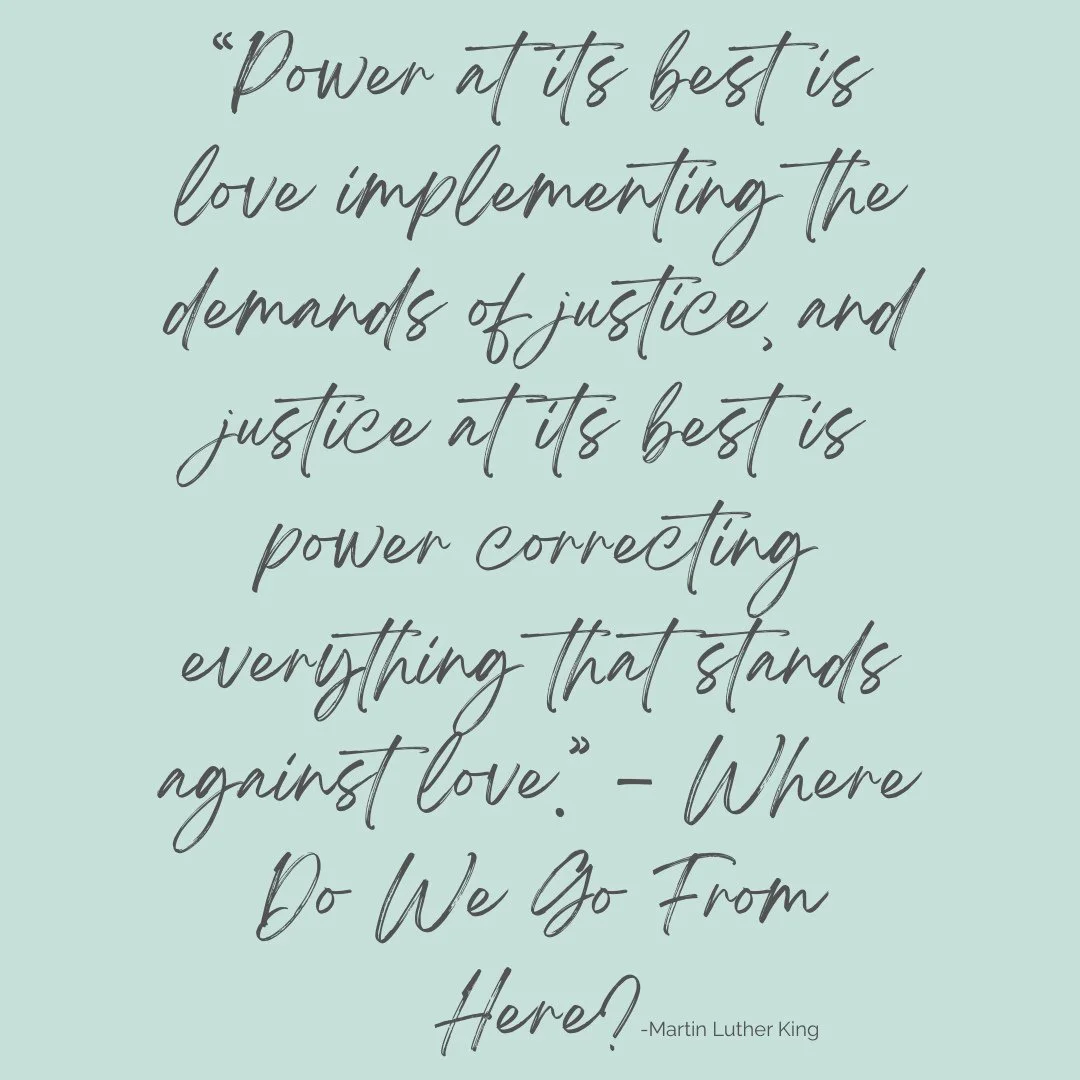 “Power at its best is
love implementing the
demands of justice, and
justice at its best is
power correcting
everything that stands
against love.” – Where
Do We Go From
Here? -Martin Luther King